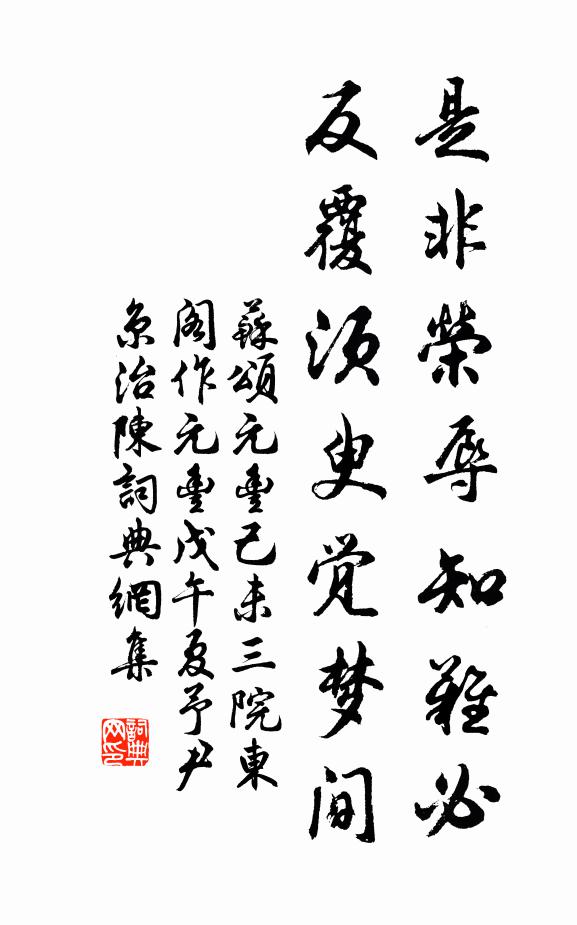 是非榮辱知難必
反覆須臾觉梦间
蘇頌元豐己未三院東
閣作元豐戊午夏予尹
京治陳詞典網集
詞典网印